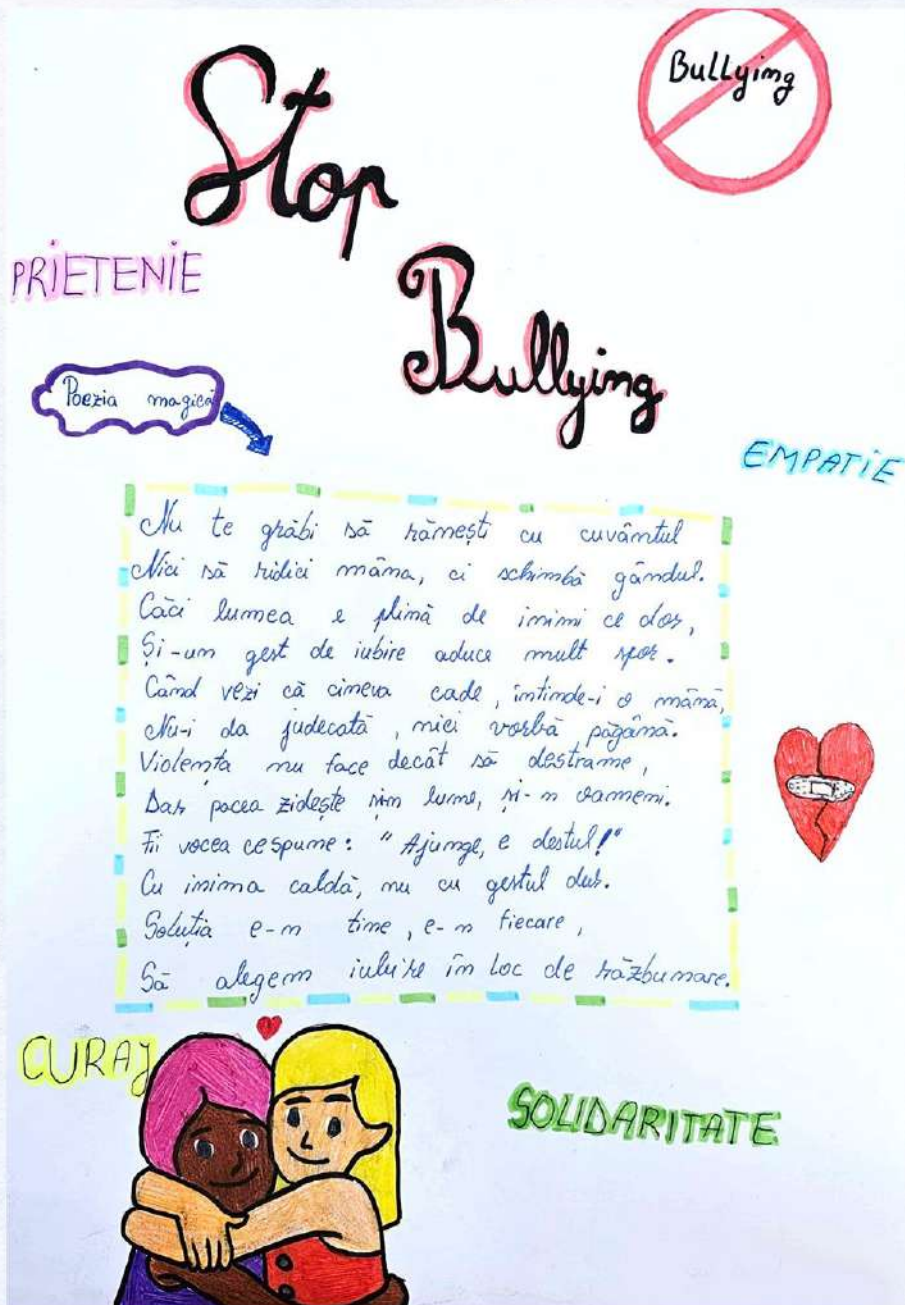 Stop
Bullying
Bullying
PRIETENIE
Poezia magică
EMPATIE
Nu te grăbi să rănești cu cuvântul
Nici să ridici mâna, ci schimbă gândul.
Căci lumea e plină de inimi ce dor,
Și-un gest de iubire aduce mult spor.
Când vezi că cineva cade, întinde-i o mână,
Nu-i da judecată, nici vorbă păgână.
Violența nu face decât să destrame,
Dar pacea zidește și-n lume, și-n oameni.
Fii vocea ce spune: "Ajunge, e destul!"
Cu inima caldă, nu cu gestul dur.
Soluția e-n tine, e-n fiecare,
Să alegem iubire în loc de răzbunare.
CURAJ
SOLIDARITATE